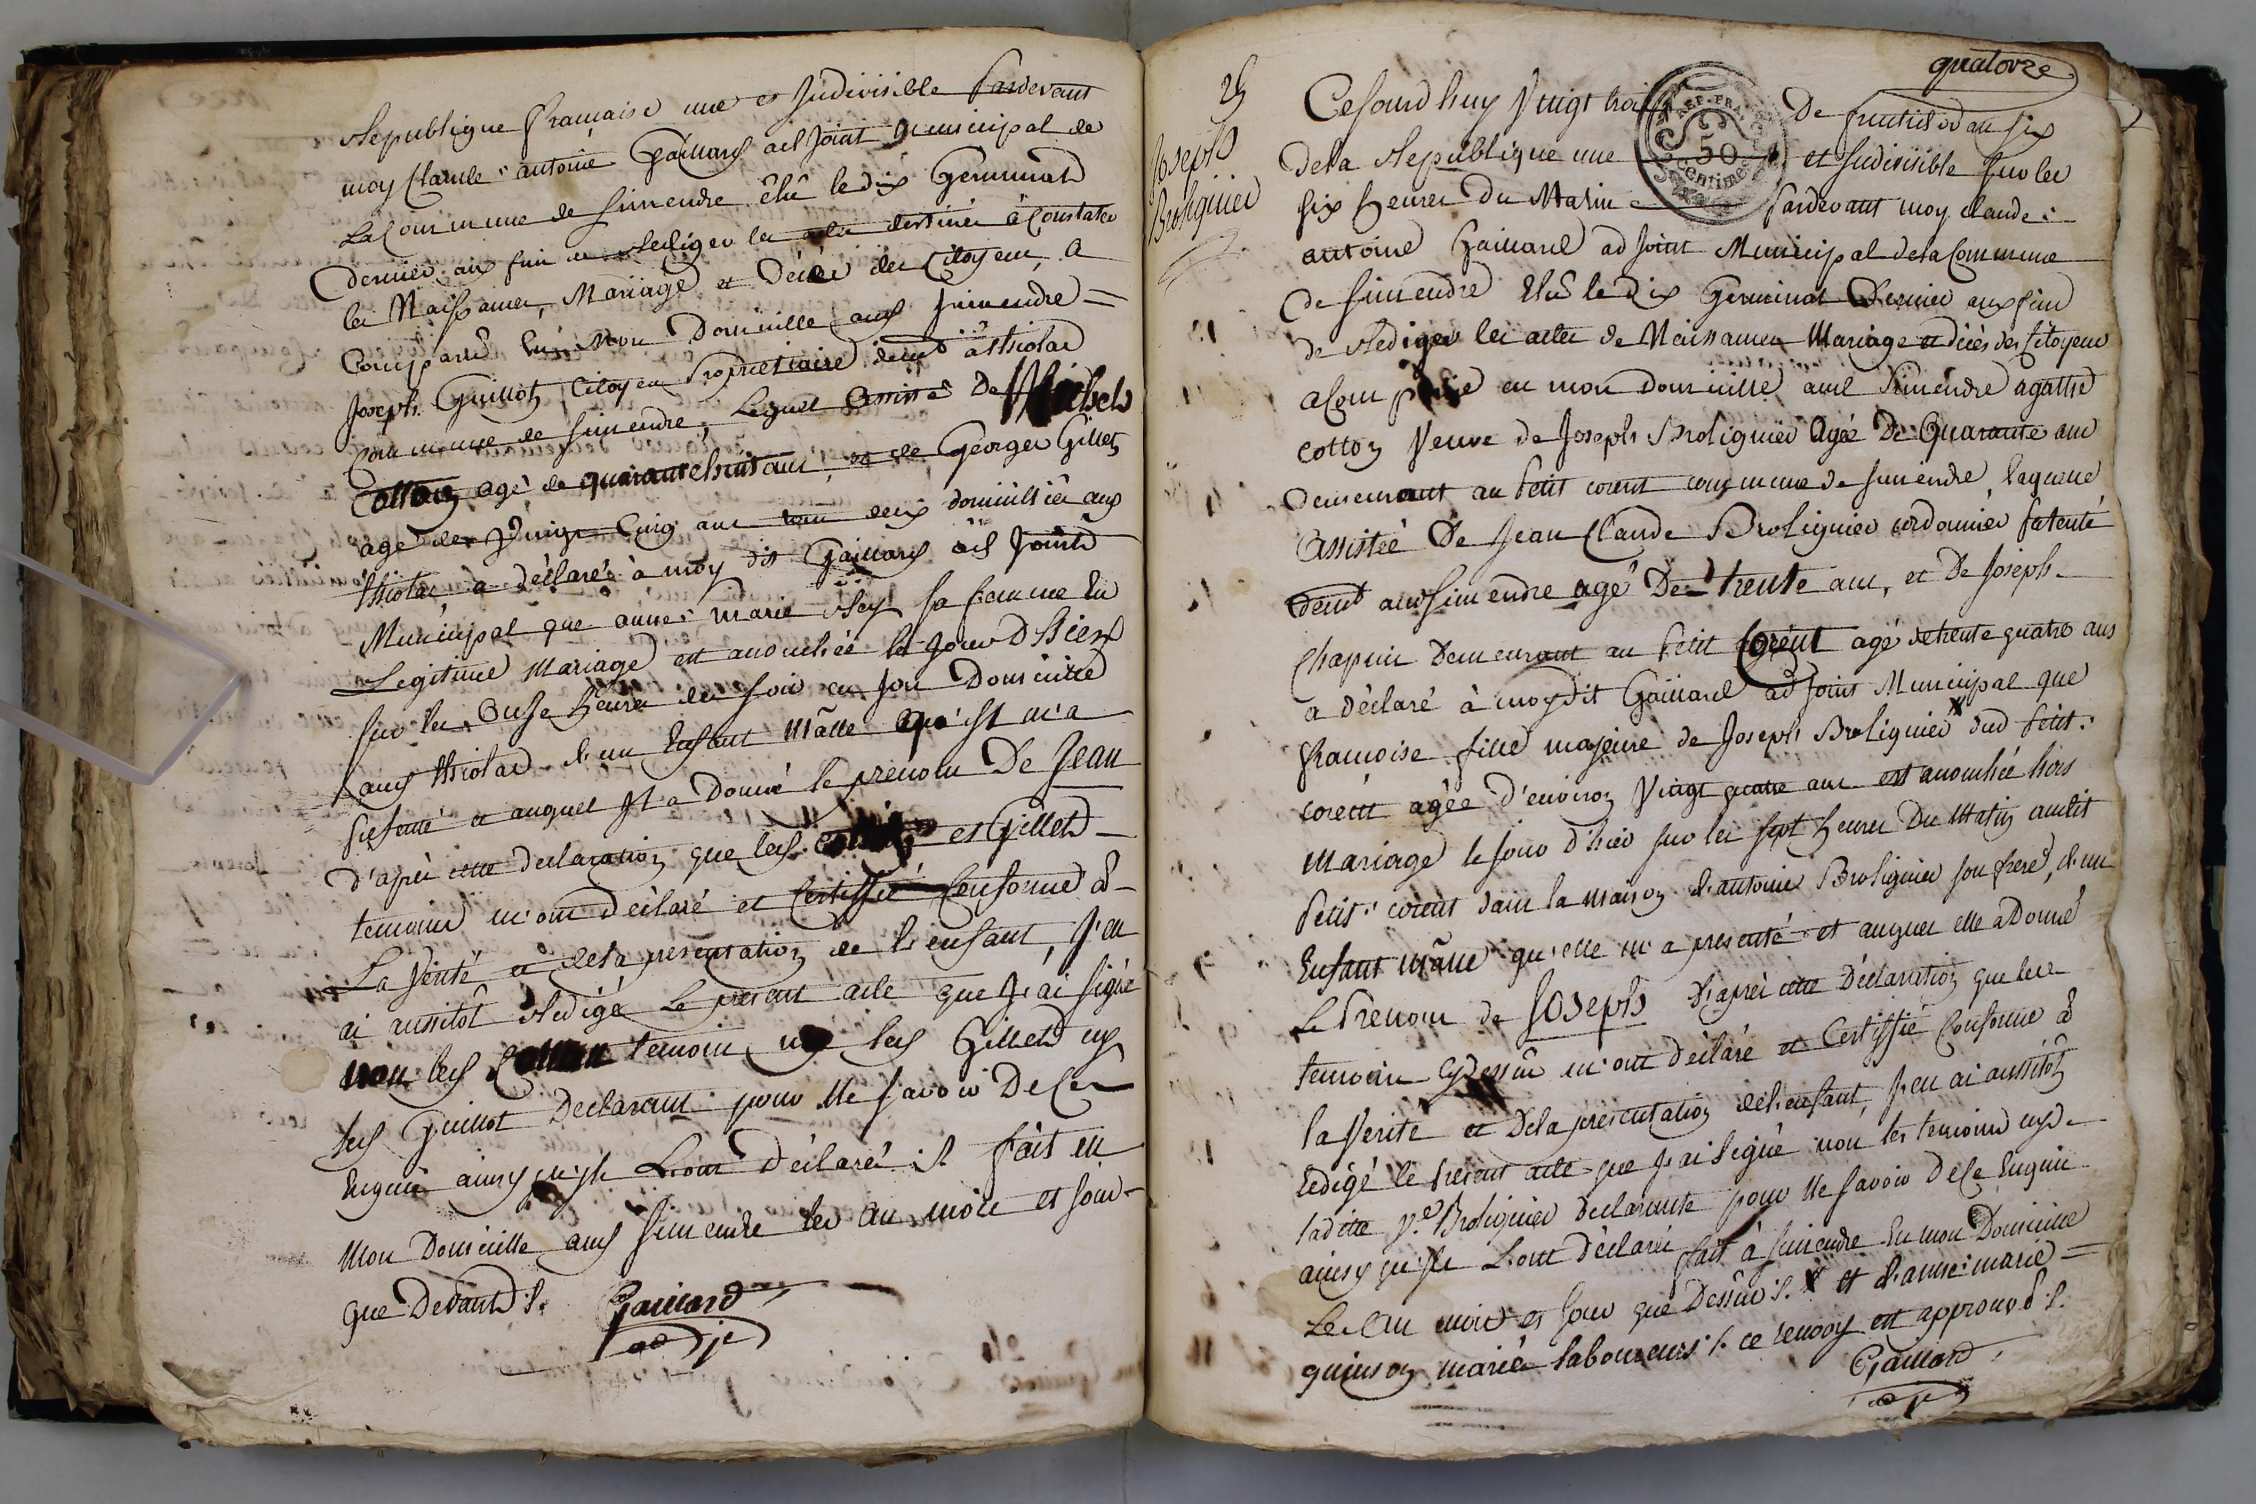 Republique française une et Indivisible Pardevant
moy Claude antoine Gaillard adjoint Municipal de
La Commune de Simendre élû le dix Germinal
dernier aux fins de Rediger les actes destinés à Constater
les Naissances, Mariage et Décès des Citoyens, A
Comparû En Mon Domicille aud Simendre =
Joseph Guillot Citoyen Proprietaire demt à
commune de Simendre, Lequel Assisté De Michel
Cottaz agé de quarante huit ans et de George Gillet
agé de Vingt Cinq ans tous deux domicilliés aud
a déclaré à moy dit Gaillard adjoint
Municipal que anne marie Rey sa femme En
Legitime Mariage est accouchée le Jour D'hier
sur les Onse heures du soir en son Domicille
aud d'un Enfant Mâlle qu'il m'a
presenté et auquel Il a Donné le prenom De Jean
d'après cette declaration que lesd et Gillet
temoins m'ont déclaré et Certiffié Conforme à
La Verité et de la presentation de l'enfant, J'en
ai aussitôt Redigé Le present acte que J'ai signé
non lesd temoin lesd Gillet
led Guillot Declarant pour Ne savoir De Ce
Enquis ainsy qu'ils L'ont déclaré fait en
Mon Domicille aud Simendre les an mois et jour
que Devant ./.
Gaillard
adj
quatorze
25
Joseph
Broliquier
Cejourd'huy Vingt trois De fructidor an six
REP. FRA.
50
Centimes
dela Republique une et Indivisible sur les
six heures Du Matin Pardevant moy claude
antoine Gaillard adjoint Municipal de la Commune
de Simendre Elû le dix Germinal Dernier aux fins
de Rediger les actes de Naissances Mariage et décès des Citoyens
a Comparue en mon domicille aud Simendre agathe
cottoz Veuve de Joseph Broliquier Agée De Quarante ans
demeurant au Petit corent commune de Simendre, laquelle
Assistée De Jean Claude Broliquier cordonnier Patenté
demt aud Simendre agé De trente ans, et De Joseph
Chapuis Demeurant au Petit Corent agé de trente quatre ans
a déclaré à moy dit Gaillard adjoint Municipal que
françoise fille majeure de Joseph Broliquier x dud Petit
corent agée d'environ Vingt quatre ans est accouchée hors
Mariage le jour d'hier sur les sept heures Du Matin audit
Petit corent dans la maison d'antoine Broliquier son frere, d'un
Enfant mâlle qu'elle m'a presenté et auquel elle a Donné
Le Prenom de Joseph D'après cette Déclaration que les
temoins cydessûs m'ont déclaré et Certiffié Conforme à
la Verité et De la presentation de l'enfant, J'en ai aussitôt
Redigé le present acte que J'ai signé non les temoins
ladite Ve Broliquier declarante pour Ne savoir De Ce Enquis
ainsy qu'ils L'ont déclaré fait à Simendre En mon Domicille
Les an mois et Jour que Dessûs ./. x et d'anne marie =
mariés laboureurs ./. ce renvoy est approuvé ./.
Gaillard
adj